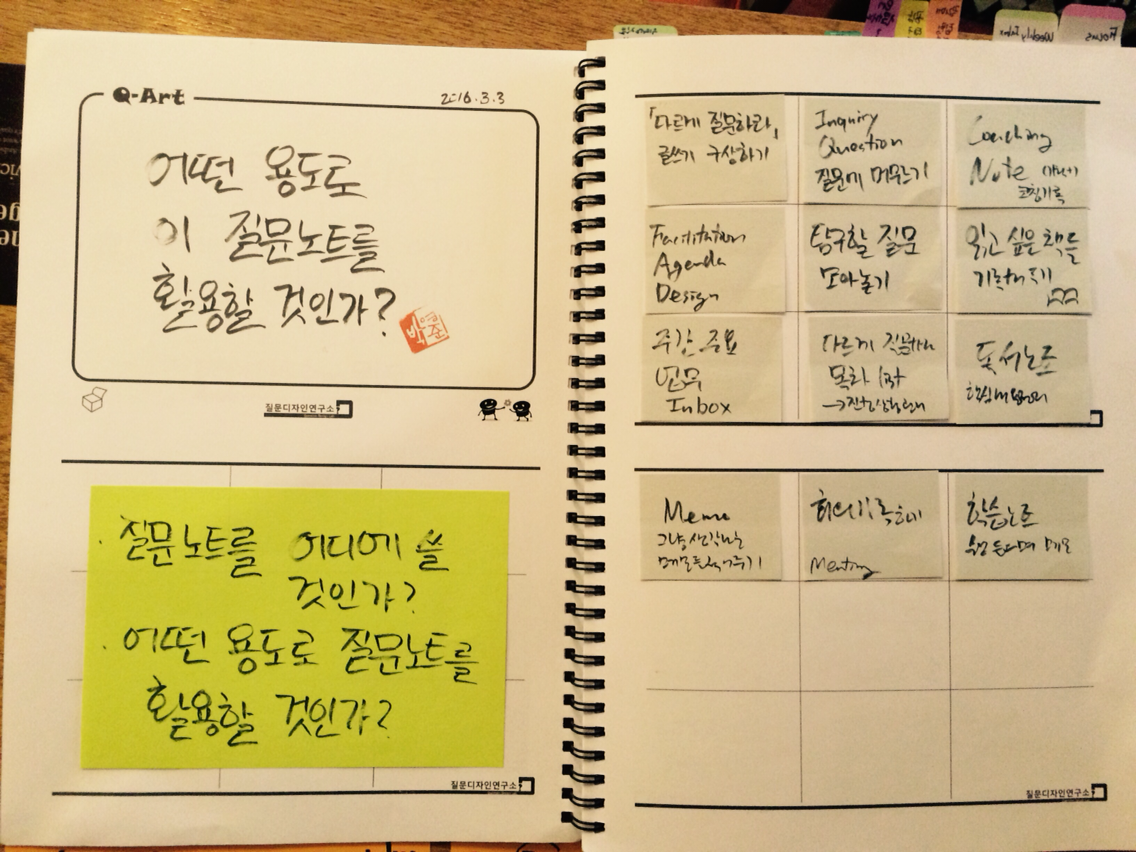 Q-Art
2016.3.3
어떤 용도로
이 질문노트를
활용할 것인가?
질문디자인연구소
· 질문노트를 어디에 쓸
것인가?
· 어떤 용도로 질문노트를
활용할 것인가?
질문디자인연구소
「다르게 질문하라」
글쓰기 구상하기
Inquiry
Question
질문에 머무르기
Coaching
Note
코칭기록
Facilitation
Agenda
Design
탐구할 질문
모아놓기
읽고 싶은 책들
기록해 두기
주간 주요
업무
Inbox
다르게 질문하라
목차
독서노트
Memo
그냥 생각나는
Mentoring
학습노트
메모
질문디자인연구소
Weekly Inbox
Focus